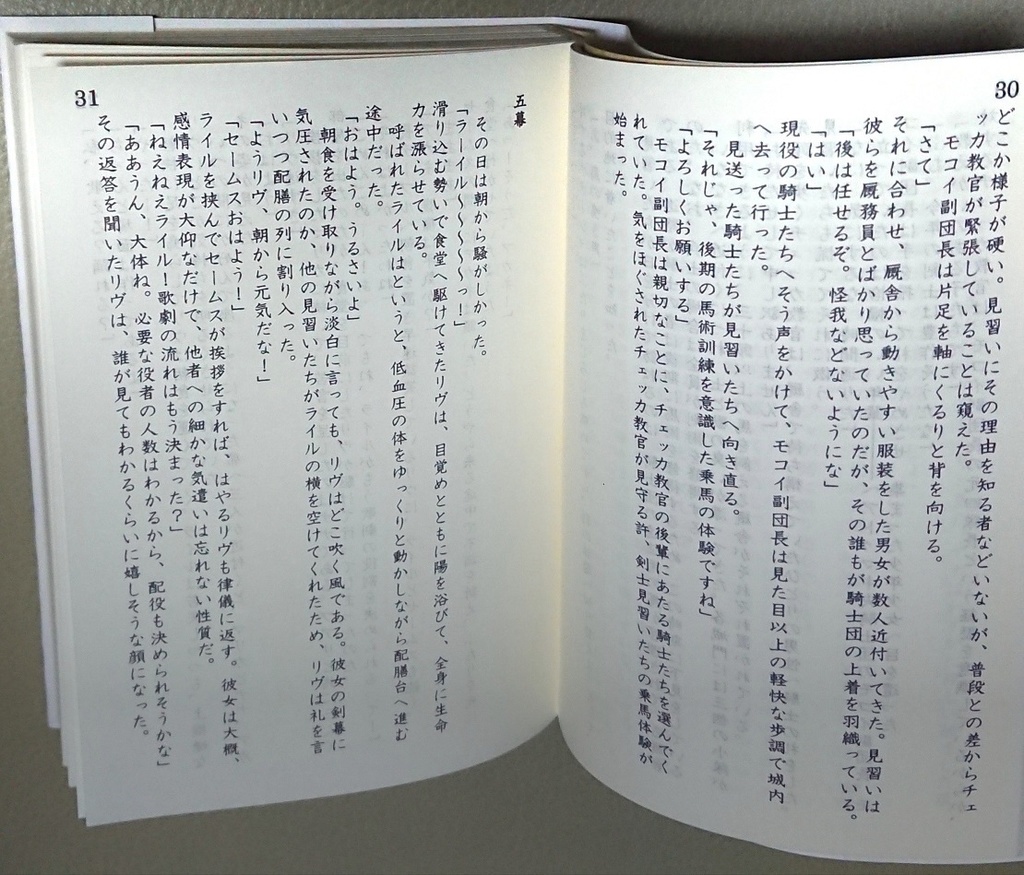 30
どこか様子が硬い。見習いにその理由を知る者などいないが、普段との差からチェ
ッカ教官が緊張していることは窺えた。
モコイ副団長は片足を軸にくるりと背を向ける。
「さて」
それに合わせ、厩舎から動きやすい服装をした男女が数人近付いてきた。見習いは
彼らを厩務員とばかり思っていたのだが、その誰もが騎士団の上着を羽織っている。
「後は任せるぞ。怪我などないようにな」
「はい」
現役の騎士たちへそう声をかけて、モコイ副団長は見た目以上の軽快な歩調で城内
へ去って行った。
見送った騎士たちが見習いたちへ向き直る。
「それじゃ、後期の馬術訓練を意識した乗馬の体験ですね」
「よろしくお願いする」
モコイ副団長は親切なことに、チェッカ教官の後輩にあたる騎士たちを選んでく
れていた。気をほぐされたチェッカ教官が見守る許、剣士見習いたちの乗馬体験が
始まった。
五幕
その日は朝から騒がしかった。
「ラーイル〜〜〜〜〜っ！」
滑り込む勢いで食堂へ駆けてきたリヴは、目覚めとともに陽を浴びて、全身に生命
力を漲らせている。
呼ばれたライルはというと、低血圧の体をゆっくりと動かしながら配膳台へ進む
途中だった。
「おはよう。うるさいよ」
朝食を受け取りながら淡白に言っても、リヴはどこ吹く風である。彼女の剣幕に
気圧されたのか、他の見習いたちがライルの横を空けてくれたため、リヴは礼を言
いつつ配膳の列に割り入った。
「ようリヴ、朝から元気だな！」
「セームスおはよう！」
ライルを挟んでセームスが挨拶をすれば、はやるリヴも律儀に返す。彼女は大概、
感情表現が大仰なだけで、他者への細かな気遣いは忘れない性質だ。
「ねえねえライル！歌劇の流れはもう決まった？」
「ああうん、大体ね。必要な役者の人数はわかるから、配役も決められそうかな」
その返答を聞いたリヴは、誰が見てもわかるくらいに嬉しそうな顔になった。
31